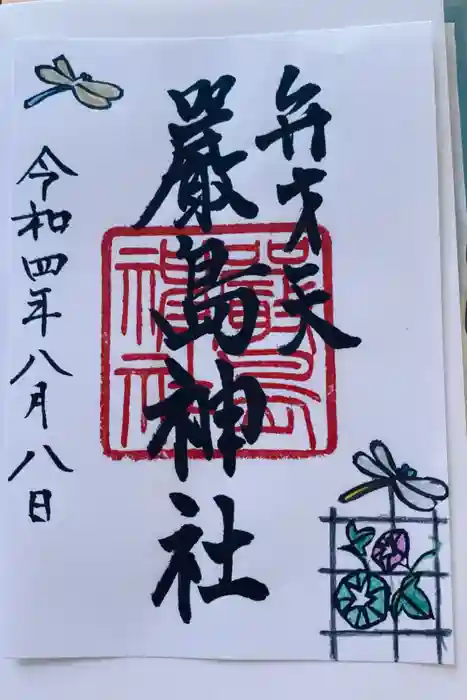 弁才天
嚴島神社
令和四年八月八日
嚴島
神社